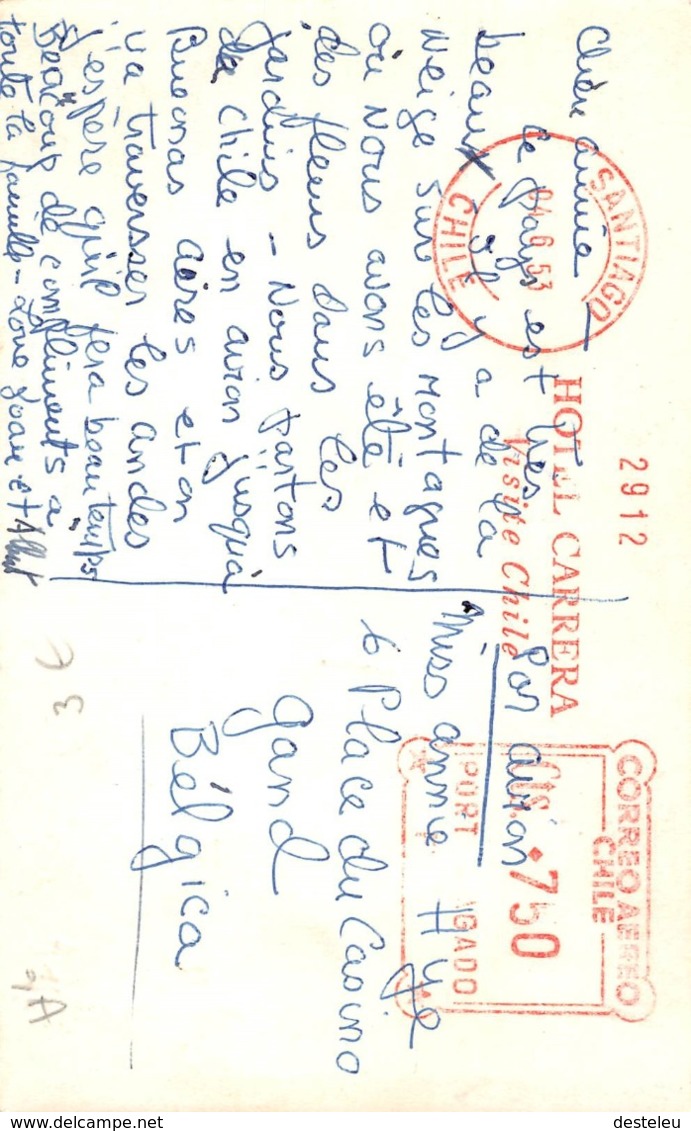 Chère Annie –
Ce pays est très
beaux il y a de la
Neige sur les Montagnes
où Nous avons été et
des fleurs dans les
jardins – Nous partons
de Chile en avion jusqu'à
Buenas aires et on
va traversser les andes
j'espère qu'il fera beau temps
Beaucoup de compliments a
toute la famille – Love Joan et Albert
SANTIAGO
CHILE
HOTEL CARRERA
Visite Chile
2912
Por avion
CORREO AEREO
CHILE
Cts. 750
PORT PAGADO
Miss annie Hye
6 Place du Casino
gand
Bélgica
3 €
desteleu